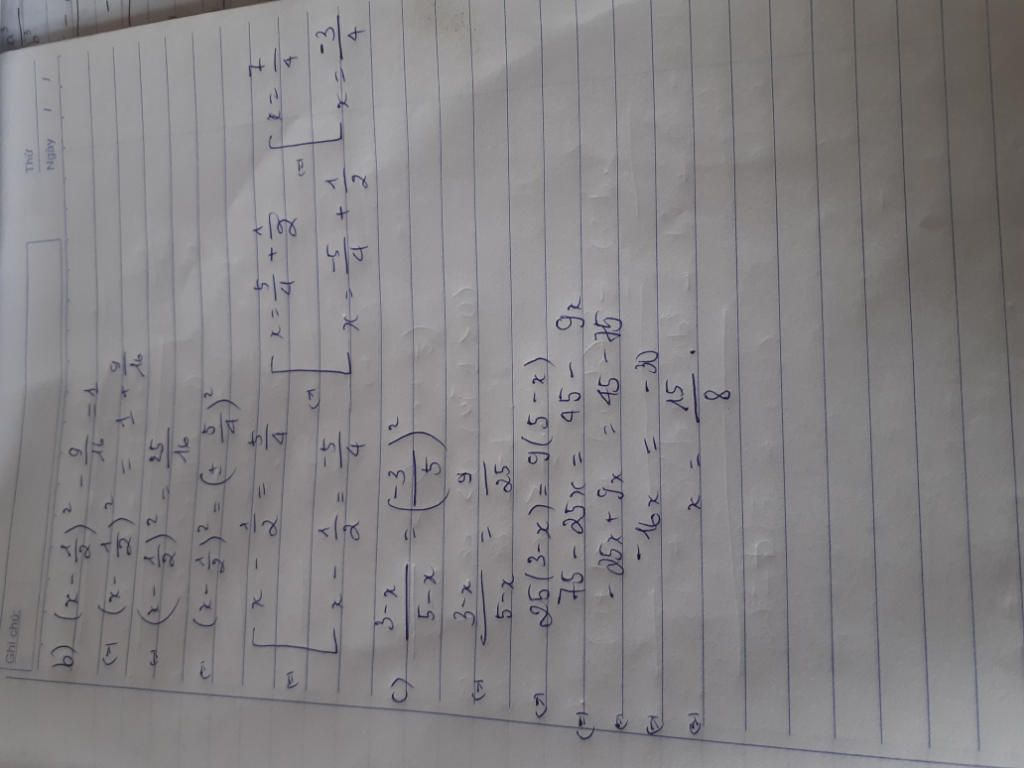 Ghi chú:
Thứ
Ngày / /
b) (x - 1/2)² - 9/16 = 1
(=) (x - 1/2)² = 1 + 9/16
(=) (x - 1/2)² = 25/16
(=) (x - 1/2)² = (± 5/4)²
(=) [ x - 1/2 = 5/4 (=) [ x = 5/4 + 1/2 (=) [ x = 7/4
x - 1/2 = -5/4 x = -5/4 + 1/2 x = -3/4
c) 3-x/5-x = (-3/5)²
(=) 3-x/5-x = 9/25
(=) 25(3-x) = 9(5-x)
(=) 75 - 25x = 45 - 9x
(=) -25x + 9x = 45 - 75
(=) -16x = -30
(=) x = 15/8.